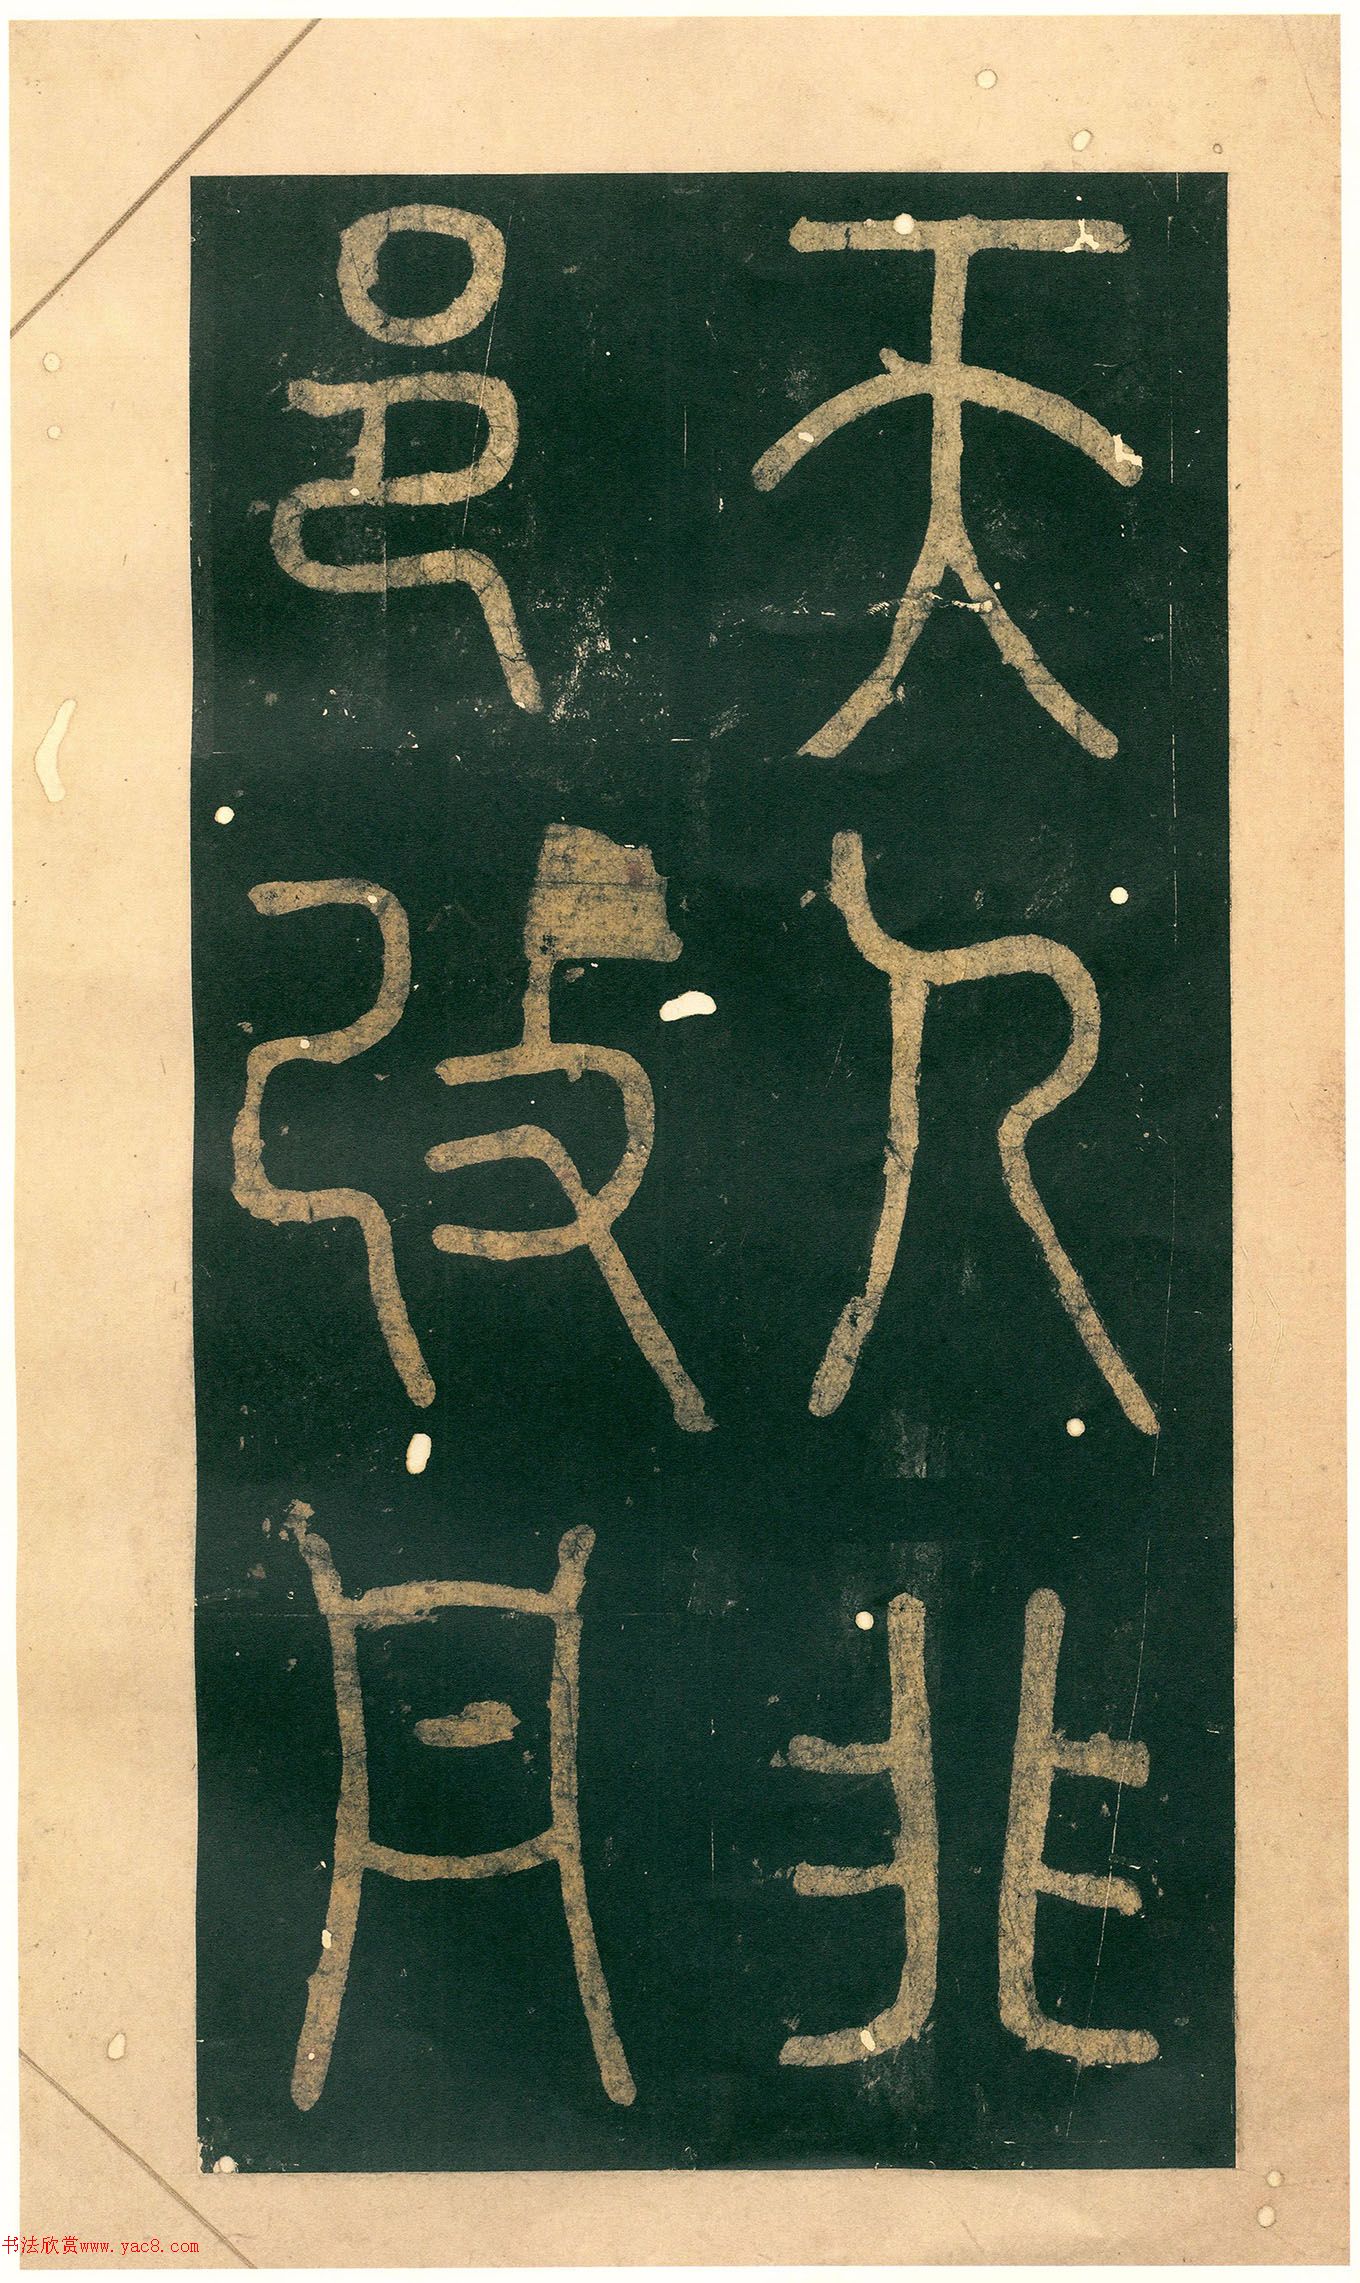 天人非
邑改井
书法欣赏www.yac8.com